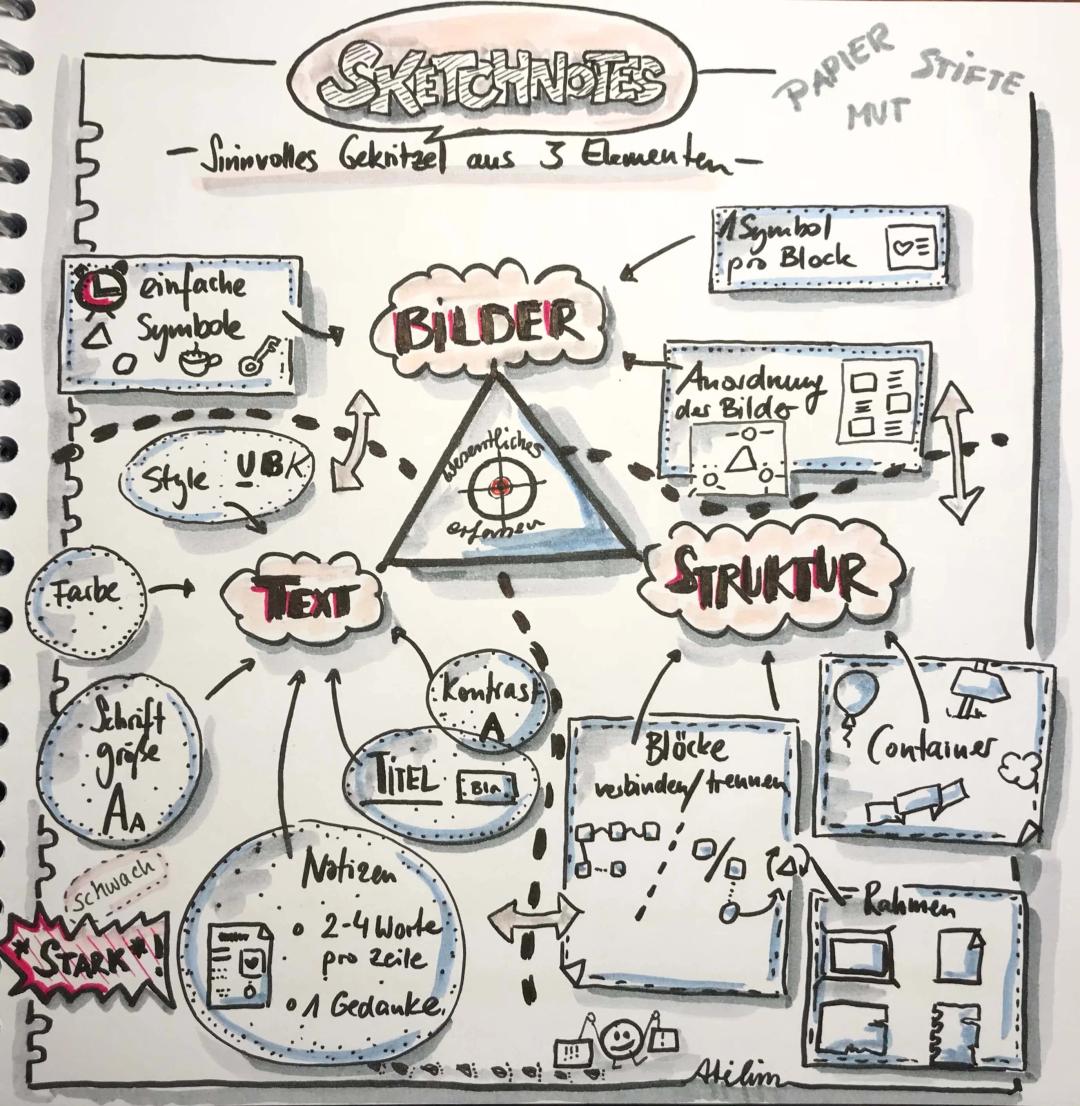 SKETCHNOTES
PAPIER STIFTE
MUT
- Sinnvolles Gekritzel aus 3 Elementen -
1 Symbol
pro Block
einfache
Symbole
BILDER
Anordnung
der Bilder
Style UBK
wesentliches
erfassen
Farbe
TEXT
STRUKTUR
Schrift
größe
AA
Kontrast
A
TITEL
Bla
Blöcke
verbinden/trennen
Container
schwach
*STARK*!
Notizen
• 2-4 Worte
pro Zeile
• 1 Gedanke
Rahmen
Atelim